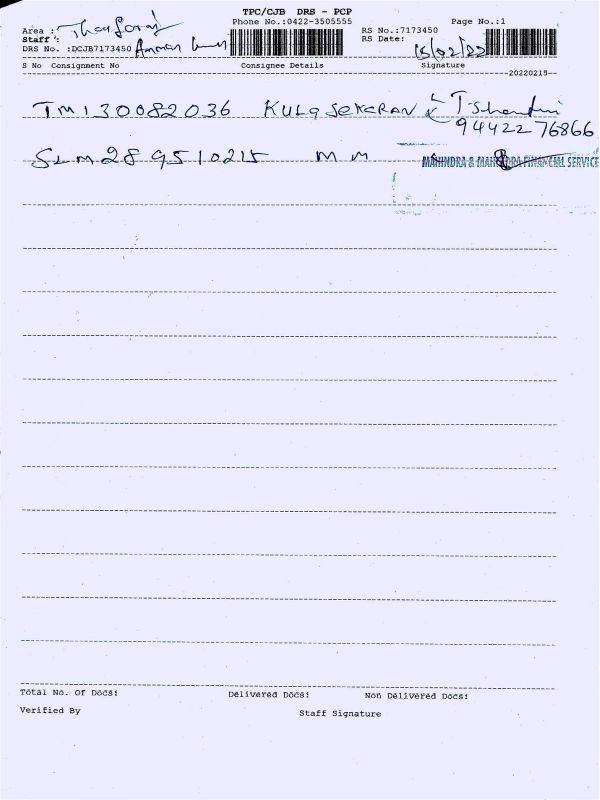 TPC/CJB DRS - PCP
Phone No.:0422-3505555 Page No.:1
Area :
Staff :
RS No.:7173450
RS Date: 15/02/22
DRS No. :DCJB7173450 Amman
S No Consignment No Consignee Details Signature
20220215
TM130082036 KULASEKARAN
9442276866
SLM289510215 MM MAHINDRA & MAHINDRA FINANCIAL SERVICE
Total No. Of Docs: Delivered Docs: Non Delivered Docs:
Verified By Staff Signature